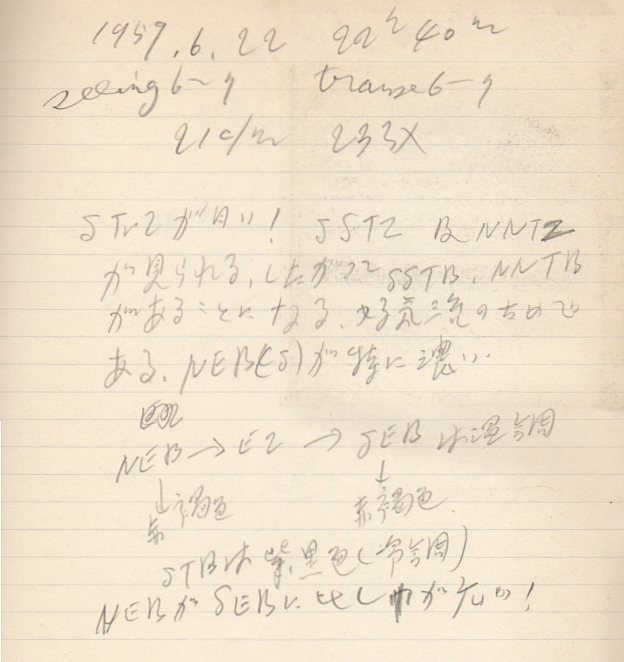 1959.6.22 22h40m
seeing 6~7 transe 6~7
21c/m 233X
STrZが白い! SSTZ 及 NNTZ
が見られる、したがって SSTB、NNTB
があることになる、好気流のためで
ある、NEB(S)が特に濃い
NEB→EZ→SEB は温調
↓赤褐色 ↓赤褐色
STBは紫黒色(冷調)
NEBがSEBに比し巾が広い!